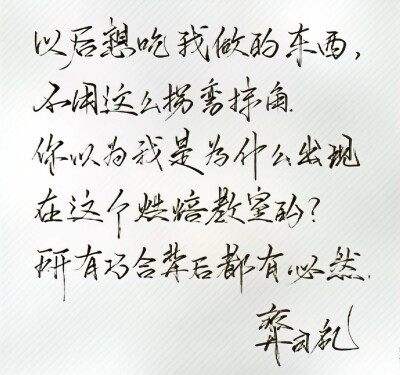 以后想吃我做的东西,
不用这么拐弯抹角.
你以为我是为什么出现
在这个烘焙教室的?
所有巧合背后都有必然.
齐司礼